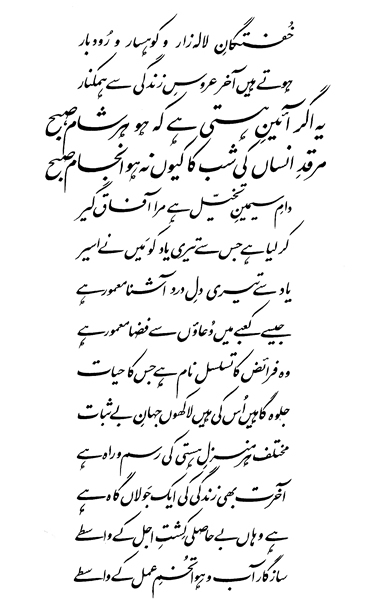 خُفتگانِ لالہ زار و کوہسار و رُودبار
ہوتے ہیں آخر عروسِ زندگی سے ہمکنار
یہ اگر آئینِ ہستی ہے کہ ہو ہر شام صبح
مرقدِ انساں کی شب کا کیوں نہ ہو انجام صبح
دامِ سیمینِ تخیّل ہے مرا آفاق گیر
کر لیا ہے جس سے تیری یاد کو مَیں نے اسیر
یاد سے تیری دلِ درد آشنا معمور ہے
جیسے کعبے میں دُعاؤں سے فضا معمور ہے
وہ فرائض کا تسلسل نام ہے جس کا حیات
جلوہ گاہیں اُس کی ہیں لاکھوں جہانِ بے ثبات
مختلف ہر منزلِ ہستی کی رسم و راہ ہے
آخرت بھی زندگی کی ایک جَولاں گاہ ہے
ہے وہاں بے حاصلی کِشتِ اجل کے واسطے
سازگار آب و ہوا تُخمِ عمل کے واسطے